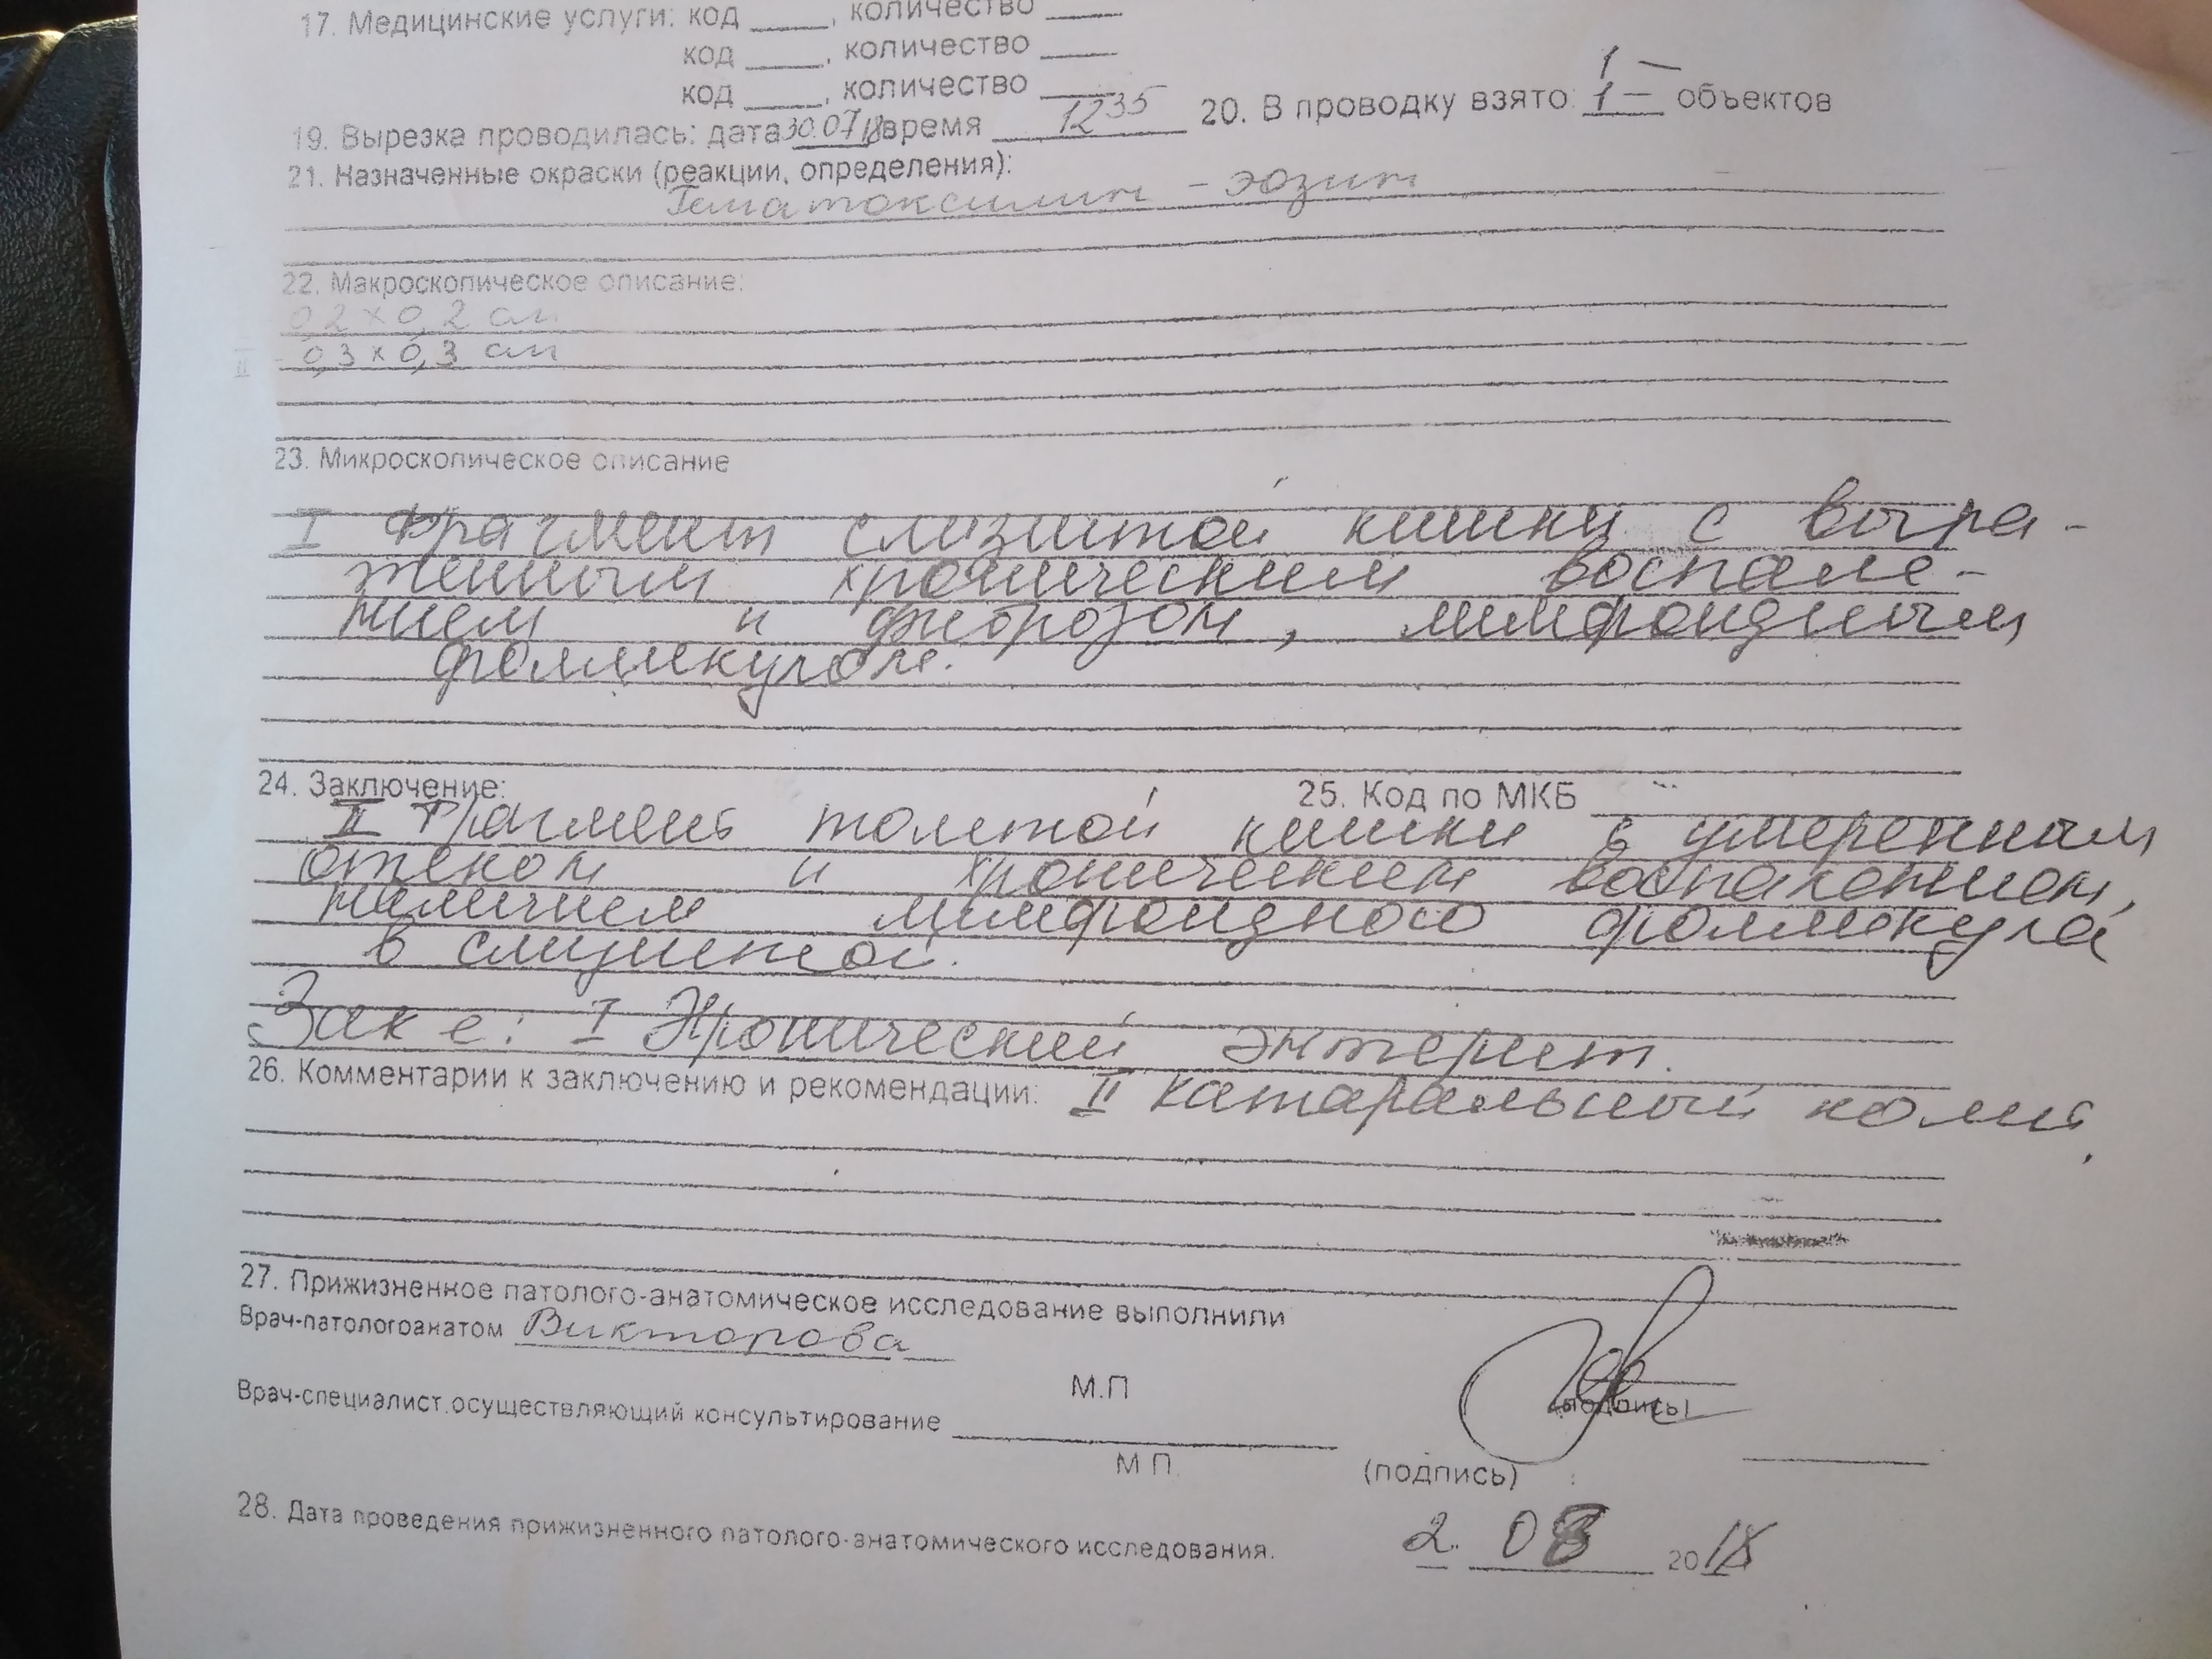 17. Медицинские услуги: код ____, количество ____
код ____, количество ____
код ____, количество ____
1 —
19. Вырезка проводилась: дата 30.07.18 время 12 35 20. В проводку взято: 1 — объектов
21. Назначенные окраски (реакции, определения):
Гематоксилин - эозин
22. Макроскопическое описание:
0,2 х 0,2 см
II 0,3 х 0,3 см
23. Микроскопическое описание
I Фрагмент слизистой кишки с выра-
женным хроническим воспале-
нием и фиброзом, лимфоидным
фолликулом.
24. Заключение: 25. Код по МКБ
II Фрагмент толстой кишки с умеренным
отеком и хроническим воспалением,
наличием лимфоидного фолликула
в слизистой.
Закл е: I Хронический энтерит.
26. Комментарии к заключению и рекомендации: II Катаральный колит.
27. Прижизненное патолого-анатомическое исследование выполнили
Врач-патологоанатом Викторова
М.П (подпись)
Врач-специалист, осуществляющий консультирование
М.П. (подпись)
28. Дата проведения прижизненного патолого-анатомического исследования. 2. 08 2018